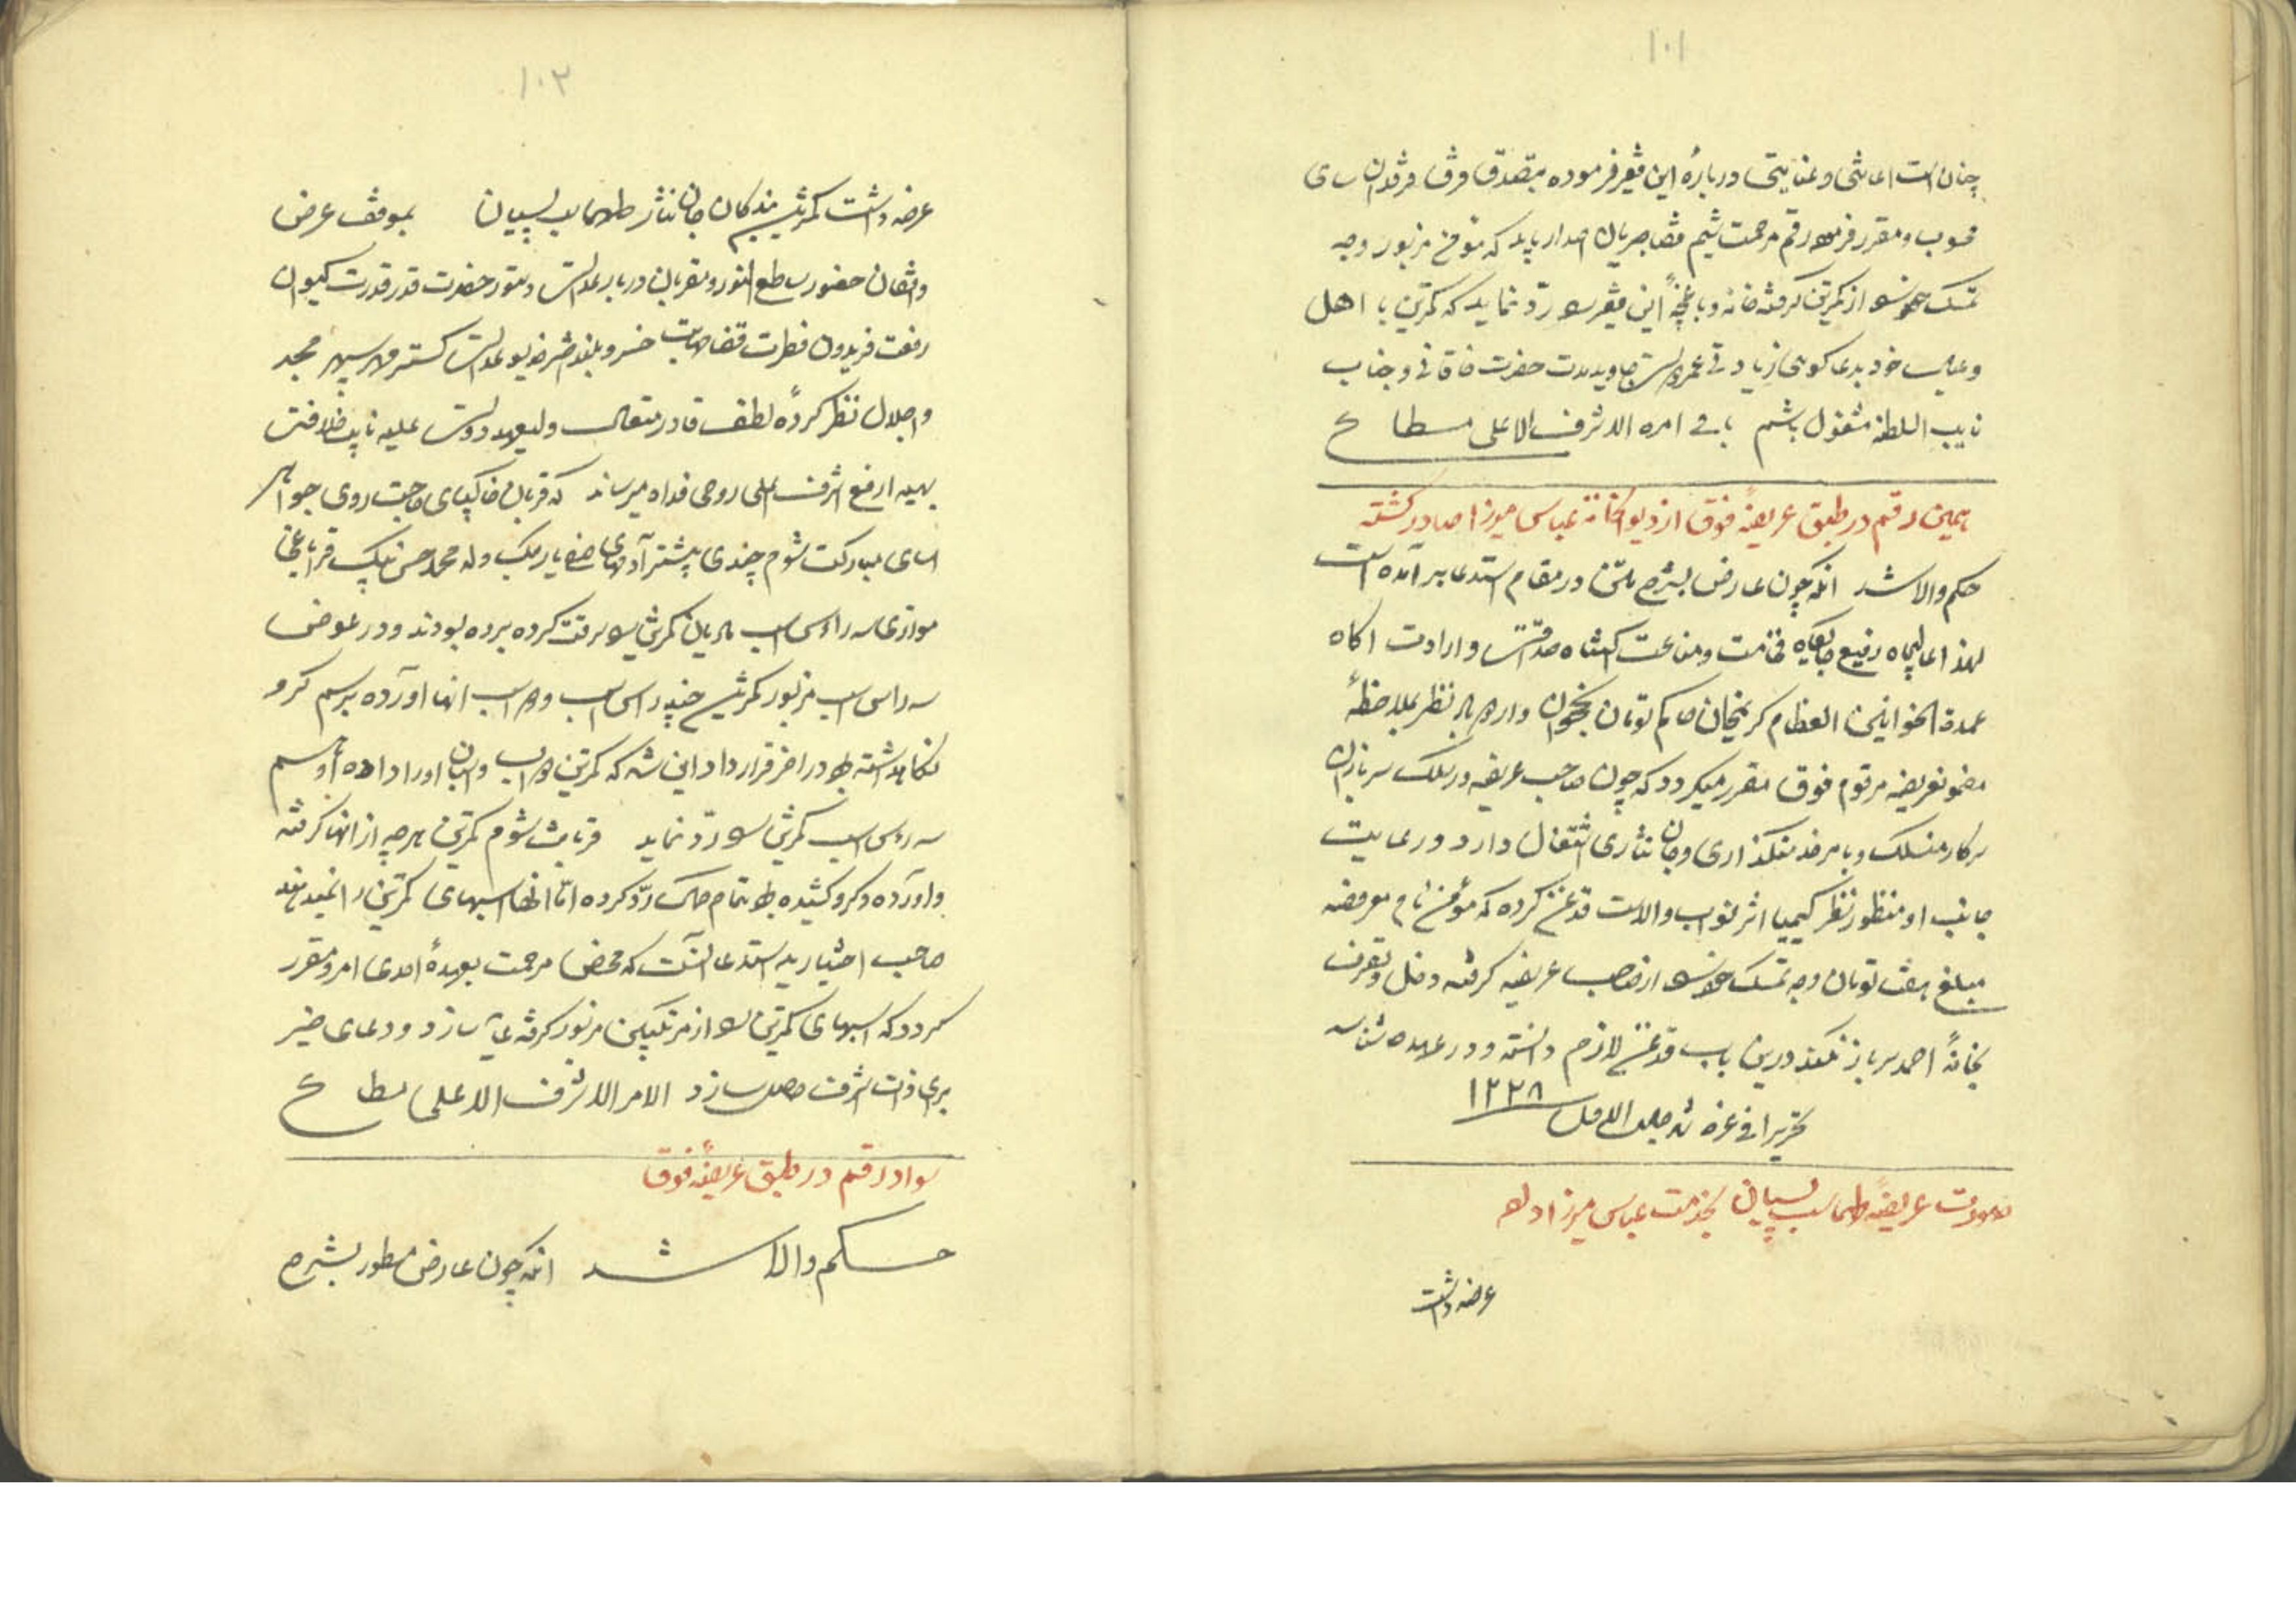 ١٠١
چنان است اعانتی و عنایتی دربارهٔ این فقیر فرموده بتصدق فرق فرقدان سای
محسوب و مقرر فرموده رقم مرحمت شیم قضا جریان اصدار یابد که مؤمن مزبور وجه
تمسک از کمترین گرفته خانه و باغچهٔ این فقیر رد نماید که کمترین با اهل
و عیال خود بدعا کوهی زیادتی عمر و دولت جاوید مدت حضرت خاقانی و جناب
نایب السلطنه مشغول باشم باقی امره الاشرف الاعلی مطاع
همین رقم در طبق عریضهٔ فوق از دیوانخانه عباس میرزا صادر گشته
حکم والا شد آنکه چون عارض بشرح متن در مقام استدعا برآمده است
لهذا عالیجاه رفیع جایگاه فخامت و مناعت اکتناه صداقت و ارادت اکاه
عمدة الخوانین العظام کریمخان حاکم تومان نخجوان نظر بملاحظهٔ
مضمون عریضه مرقوم فوق مقرر میکردد که چون صاحب عریضه در سلک سربازان
سرکار منسلک و بامر خدمتکذاری و جان نثاری اشتغال دارد و رعایت
جانب او منظور نظر کیمیا اثر نواب والاست قدغن کرده که مؤمن نام معروضه
مبلغ هفت تومان وجه تمسک از صاحب عریضه کرفته دخل و تصرف
بخانهٔ احمد سرباز نکند درین باب قدغن لازم دانسته و در عهده شناسد
تحریرا فی غره شهر ١٢٢٨
صورت عریضهٔ طهماسب بخدمت عباس میرزا
عرضه داشت
١٠٢
عرضه داشت کمترین بندکان جان نثار طهماسب بموقف عرض
واقفان حضور ساطع النور و مقربان دربار عدالت دستور حضرت قدر قدرت کیوان
رفعت فریدون فطرت قضا صلابت خسرو بلند اختر خدیو عدالت کستر مهر سپهر مجد
و اجلال نظر کردهٔ لطف قادر متعال ولیعهد دولت علیه نایب خلافت
بهیه ارفع اشرف اعلی روحی فداه میرساند که قربان خاکپای جواهر
اسای مبارکت شوم چندی پیشتر آدمهای صفی یار بک ولد محمد حسن بیک قراباغی
موازی سه رأس اسب مادیان کمترین سرقت کرده برده بودند و در عوض
سه راس اسب مزبور کمترین چند راس اسب و اسباب انها آورده برسم کرو
نکاهداشته در اخر قرارداد این شد که کمترین اسباب و اسبان او را داده او هم
سه رؤس اسب کمترین رد نماید قربانت شوم کمترین هرچه از انها کرفته
و آورده و کرو کشیده تمام رد کرده اما انها اسبهای کمترین را نمیدهند
صاحب اختیارید استدعا آنست که محض مرحمت بعهدهٔ احدی امر و مقرر
کردد که اسبهای کمترین از مرتکبین مزبور کرفته عاید سازد و دعای خیر
برای ذات اشرف حاصل سازد الامر الاشرف الاعلی مطاع
سواد رقم در طبق عریضهٔ فوق
حکم والا شد آنکه چون عارض مسطور بشرح